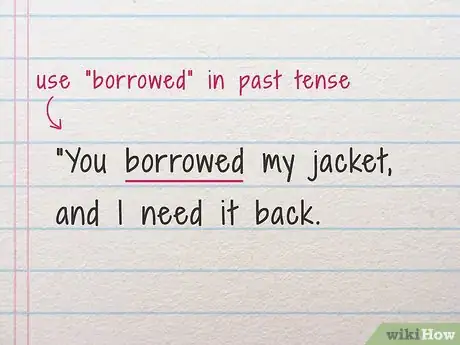 use "borrowed" in past tense
"You borrowed my jacket,
and I need it back.
wikiHow